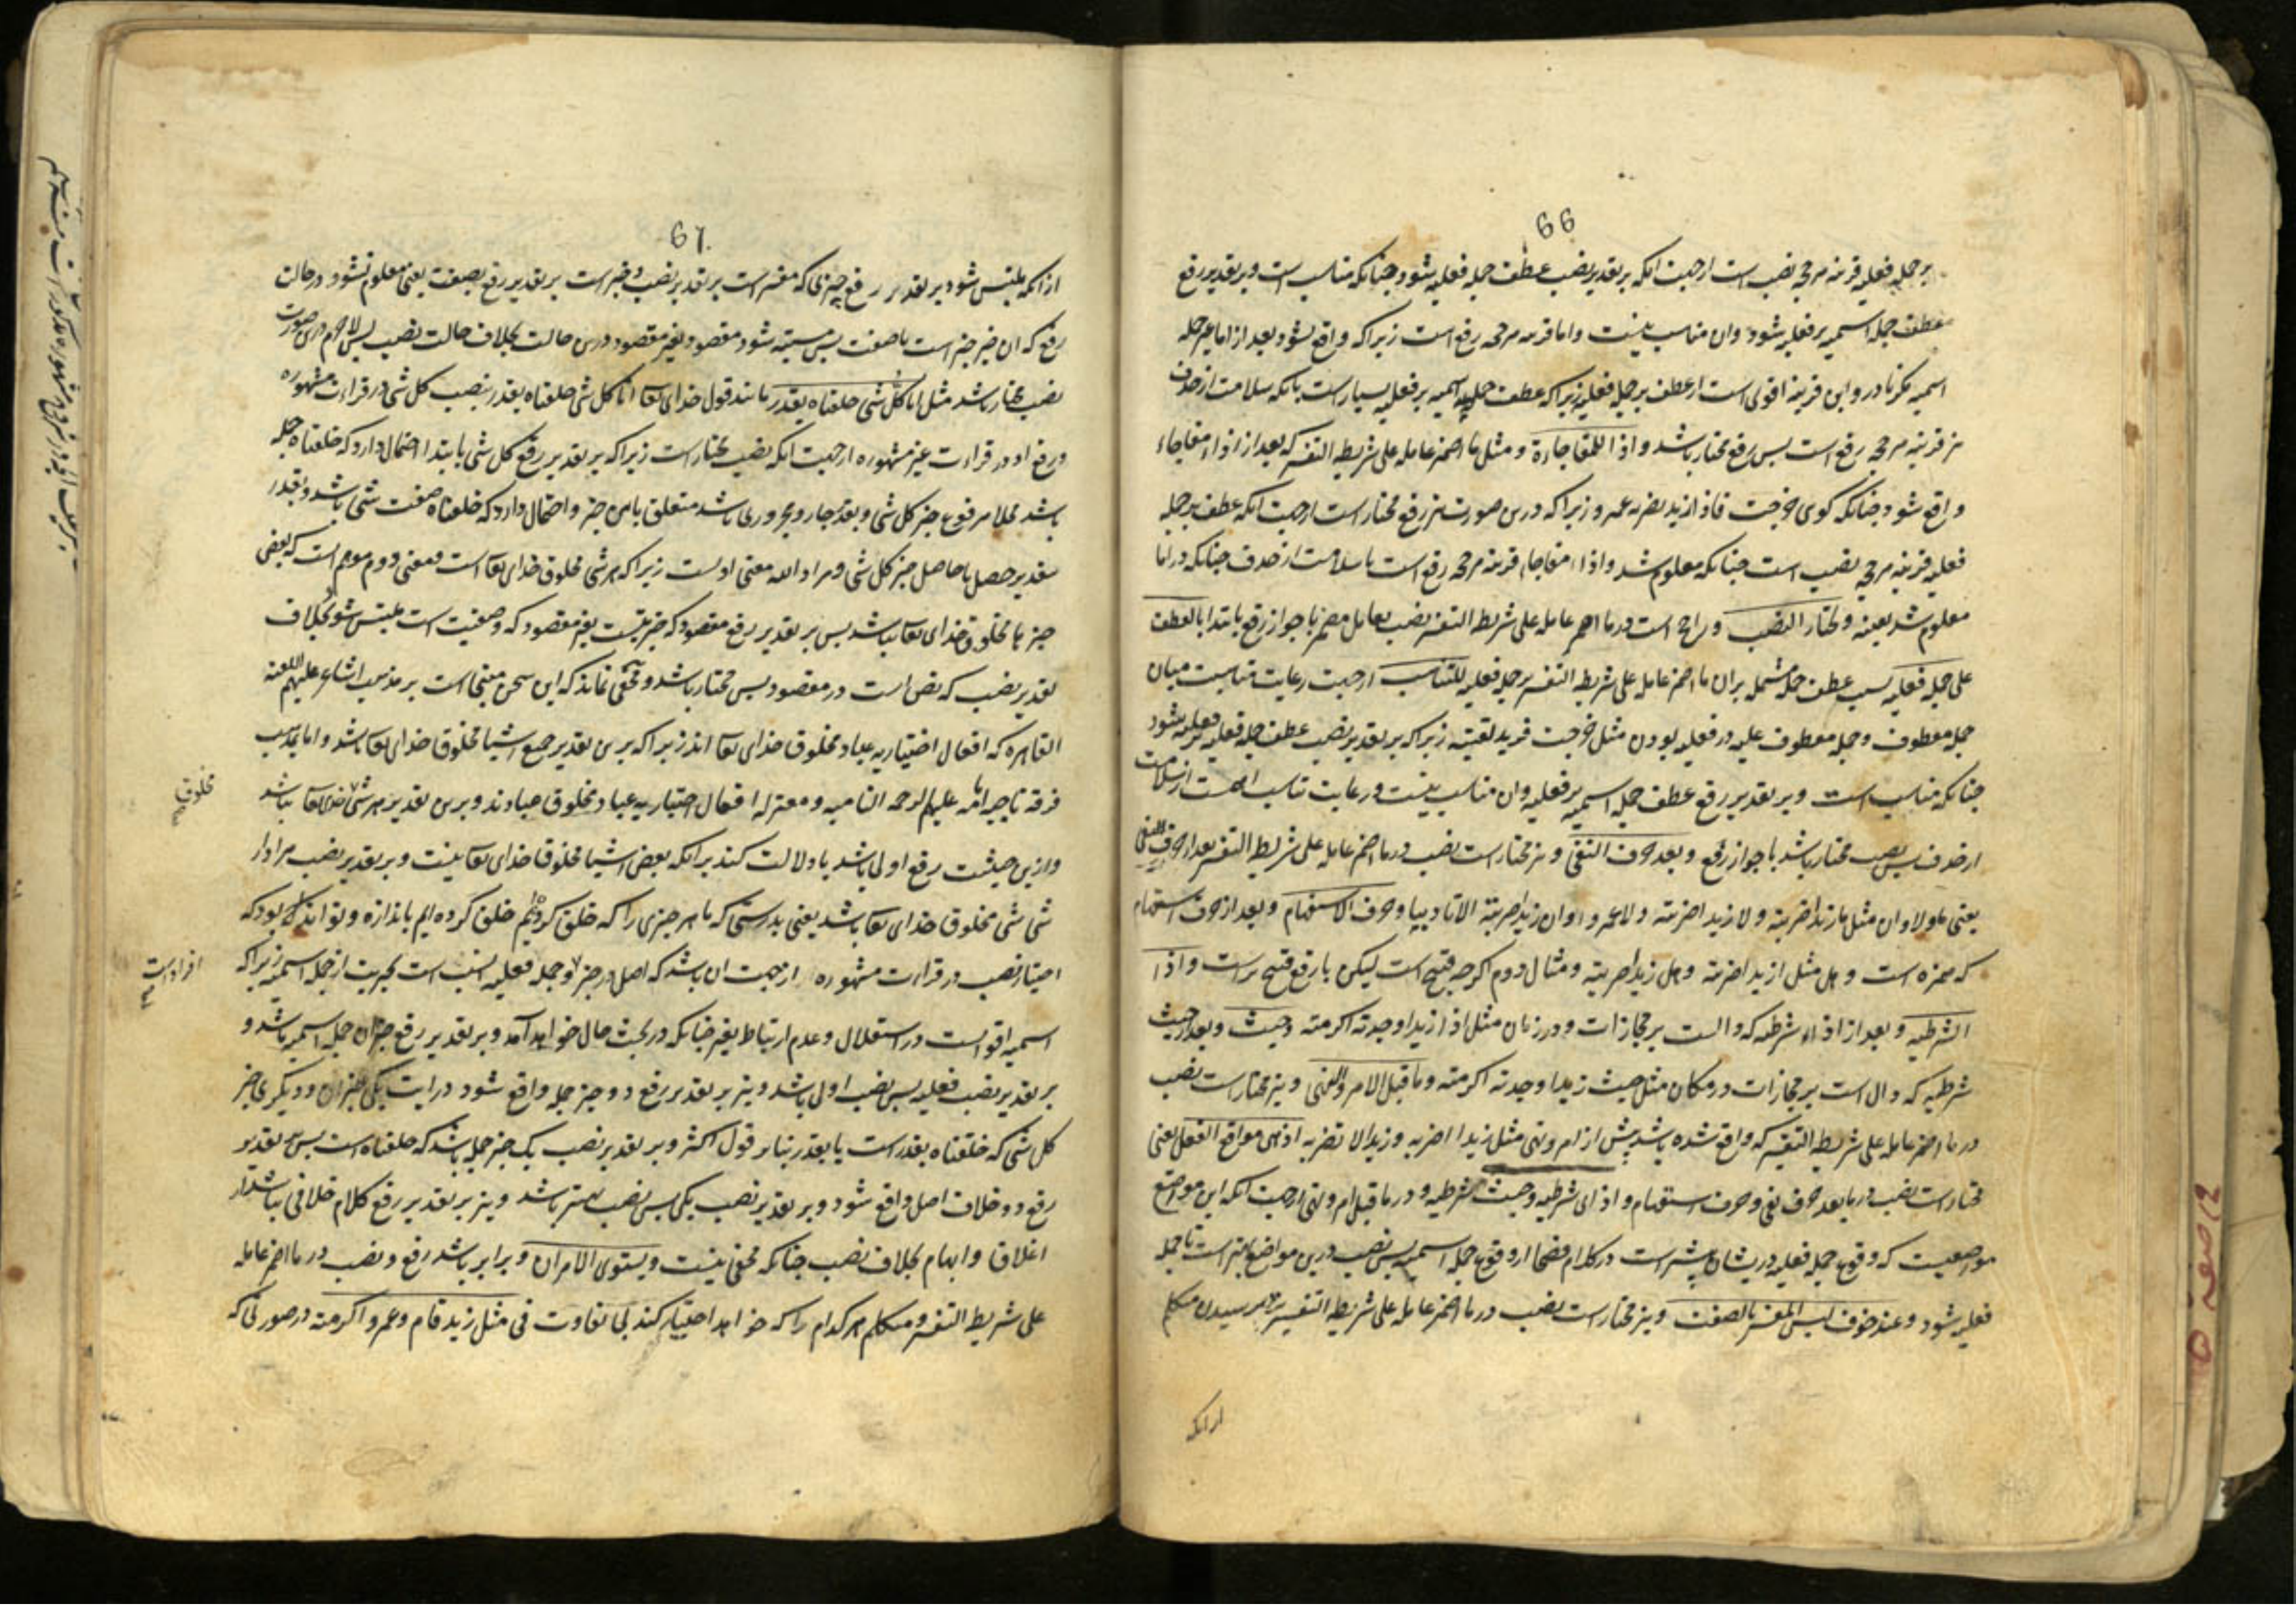 66
بر جمله فعلیه قرینه مرجحه نصب است ازجهت انکه بر تقدیر نصب عطف جمله فعلیه شود چنانکه مناسب است و بر تقدیر رفع
عطف جمله اسمیه بر فعلیه شود وان مناسب نیست واما قرینه مرجحه رفع است زیرا که واقع نشود بعد از اما غیر جمله
اسمیه مکر نادر و این قرینه اقوی است از عطف بر جمله فعلیه زیرا که عطف جمله اسمیه بر فعلیه بسیار است بانکه سلامت از حذف
نیز قرینه مرجحه رفع است پس رفع مختار باشد و اذا للمفاجاءة و مثل ما اضمر عامله علی شریطه التفسیر که بعد از اذاء مفاجاء
واقع شود چنانکه کوی خرجت فاذا زید یضربه عمرو زیرا که درین صورت نیز رفع مختار است ازجهت انکه عطف بر جمله
فعلیه قرینه مرجحه نصب است چنانکه معلوم شد و اذاء مفاجاء قرینه مرجحه رفع است با سلامت از حذف چنانکه در اما
معلوم شد بعینه و یختار النصب و راجح است در ما اضمر عامله علی شریطه التفسیر نصب بعامل مضمر با جواز رفع بابتدا بالعطف
علی جمله فعلیه بسبب عطف جمله مشتمل بران ما اضمر عامله علی شریطه التفسیر بر جمله فعلیه للتناسب ازجهت رعایت مناسبت میان
جمله معطوف و جمله معطوف علیه در فعلیه بودن مثل خرجت فزیدا لقیته زیرا که بر تقدیر نصب عطف جمله فعلیه بر فعلیه شود
چنانکه مناسب است و بر تقدیر رفع عطف جمله اسمیه بر فعلیه وان مناسب نیست و رعایت تناسب اهم است از سلامت
از حذف پس نصب مختار باشد با جواز رفع و بعد حرف النفی و نیز مختار است نصب در ما اضمر عامله علی شریطه التفسیر بعد از حرف النفی
یعنی ما و لا و ان مثل ما زیدا ضربته و لا زیدا ضربته و لا عمروا و ان زیدا ضربته الا تادیبا و حرف الاستفهام و بعد از حرف استفهام
که همزه است و هل مثل ازیدا ضربته و هل زیدا ضربته و مثال دوم اکرچه قبیح است لیکن با رفع قبیح تر است و اذا
الشرطیه و بعد از اذاء شرطیه که دالست بر مجازات و در زمان مثل اذا زیدا وجدته اکرمته و حیث و بعد از حیث
شرطیه که دال است بر مجازات در مکان مثل حیث زیدا وجدته اکرمته و ما قبل الامر والنهی و نیز مختار است نصب
در ما اضمر عامله علی شریطه التفسیر که واقع شده باشد پیش از امر و نهی مثل زیدا اضربه و زیدا لا تضربه اذ هی مواقع الفعل یعنی
مختار است نصب در ما بعد حرف نفی و حرف استفهام و اذای شرطیه و حیث شرطیه و در ما قبل امر و نهی ازجهت انکه این مواضع
مواضعیست که وقوع جمله فعلیه دریشان بیشتر است در کلام فصحا از وقوع جمله اسمیه پس نصب درین مواضع بهتر است تا جمله
فعلیه شود و عند خوف لبس المفسر بالصفت و نیز مختار است نصب در ما اضمر عامله علی شریطه التفسیر نزد ترسیدن متکلم
ازانکه
67
ازانکه ملتبس شود بر تقدیر رفع چیزی که مفسر است بر تقدیر نصب و خبر است بر تقدیر رفع بصفت یعنی معلوم نشود در حالت
رفع که ان خبر است یا صفت پس مشتبه شود مقصود بغیر مقصود درین حالت بخلاف حالت نصب پس لاجرم درین صورت
نصب مختار باشد مثل انا کل شی خلقناه بقدر مانند قول خدای تعا انا کل شی خلقناه بقدر بنصب کل شی در قراءت مشهوره
ورفع او در قراءت غیر مشهوره ازجهت انکه نصب مختار است زیرا که بر تقدیر رفع کل شی بابتدا احتمال دارد که خلقناه جمله
باشد محلا مرفوع خبر کل شی و بقدر جار و مجروری باشد متعلق باین خبر و احتمال دارد که خلقناه صفت شی باشد و بقدر
بتقدیر حصل یا حاصل خبر کل شی و مراد الله معنی اولست زیرا که هر شی مخلوق خدای تعا است و معنی دوم موهم است که بعضی
چیزها مخلوق خدای تعا نباشد پس بر تقدیر رفع مقصود که خبریتست بغیر مقصود که وصفیت است ملتبس شود بخلاف
تقدیر نصب که نص است در مقصود پس مختار باشد و مخفی نماند که این سخن مبتنی است بر مذهب اشاعره علیهم اللعنه
القاهره که افعال اختیاریه عباد مخلوق خدای تعا اند زیرا که برین تقدیر جمیع اشیا مخلوق خدای تعا باشد واما بمذهب
فرقه ناجیه امامیه علیهم الرحمه النامیه و معتزله افعال اختیاریه عباد مخلوق عبادند و برین تقدیر هر شی خدای تعا نباشد
وازین حیثیت رفع اولی باشد تا دلالت کند برانکه بعض اشیا مخلوق خدای تعا نیست و بر تقدیر نصب مراد از
شی شی مخلوق خدای تعا باشد یعنی بدرستی که ما هر چیزی را که خلق کرده‌ایم خلق کرده ایم باندازه و تواند بود که
اختیار نصب در قراءت مشهوره ازجهت ان باشد که اصل در خبر و جمله فعلیه انسب است بخبریت از جمله اسمیه زیرا که
اسمیه اقواست در استقلال و عدم ارتباط بغیر چنانکه در بحث حال خواهد آمد و بر تقدیر رفع خبر ان جمله اسمیه باشد و
بر تقدیر نصب فعلیه پس نصب اولی باشد و نیز بر تقدیر رفع دو خبر جمله واقع شود در ایت یکی خبر ان و دیکری خبر
کل شی که خلقناه بقدر است یا بقدر بنابر قول اکثر و بر تقدیر نصب یک خبر جمله باشد که خلقناه است پس بر تقدیر
رفع دو خلاف اصل واقع شود و بر تقدیر نصب یکی پس نصب بهتر باشد و نیز بر تقدیر رفع کلام خلافی نباشد از
اغلاق و ابهام بخلاف نصب چنانکه مخفی نیست و یستوی الامران و برابر باشد رفع و نصب در ما اضمر عامله
علی شریطه التفسیر و متکلم هر کدام را که خواهد اختیار کند بی تفاوت فی مثل زید قام و عمرو اکرمته در صورتی که
مخلوق
افراد است